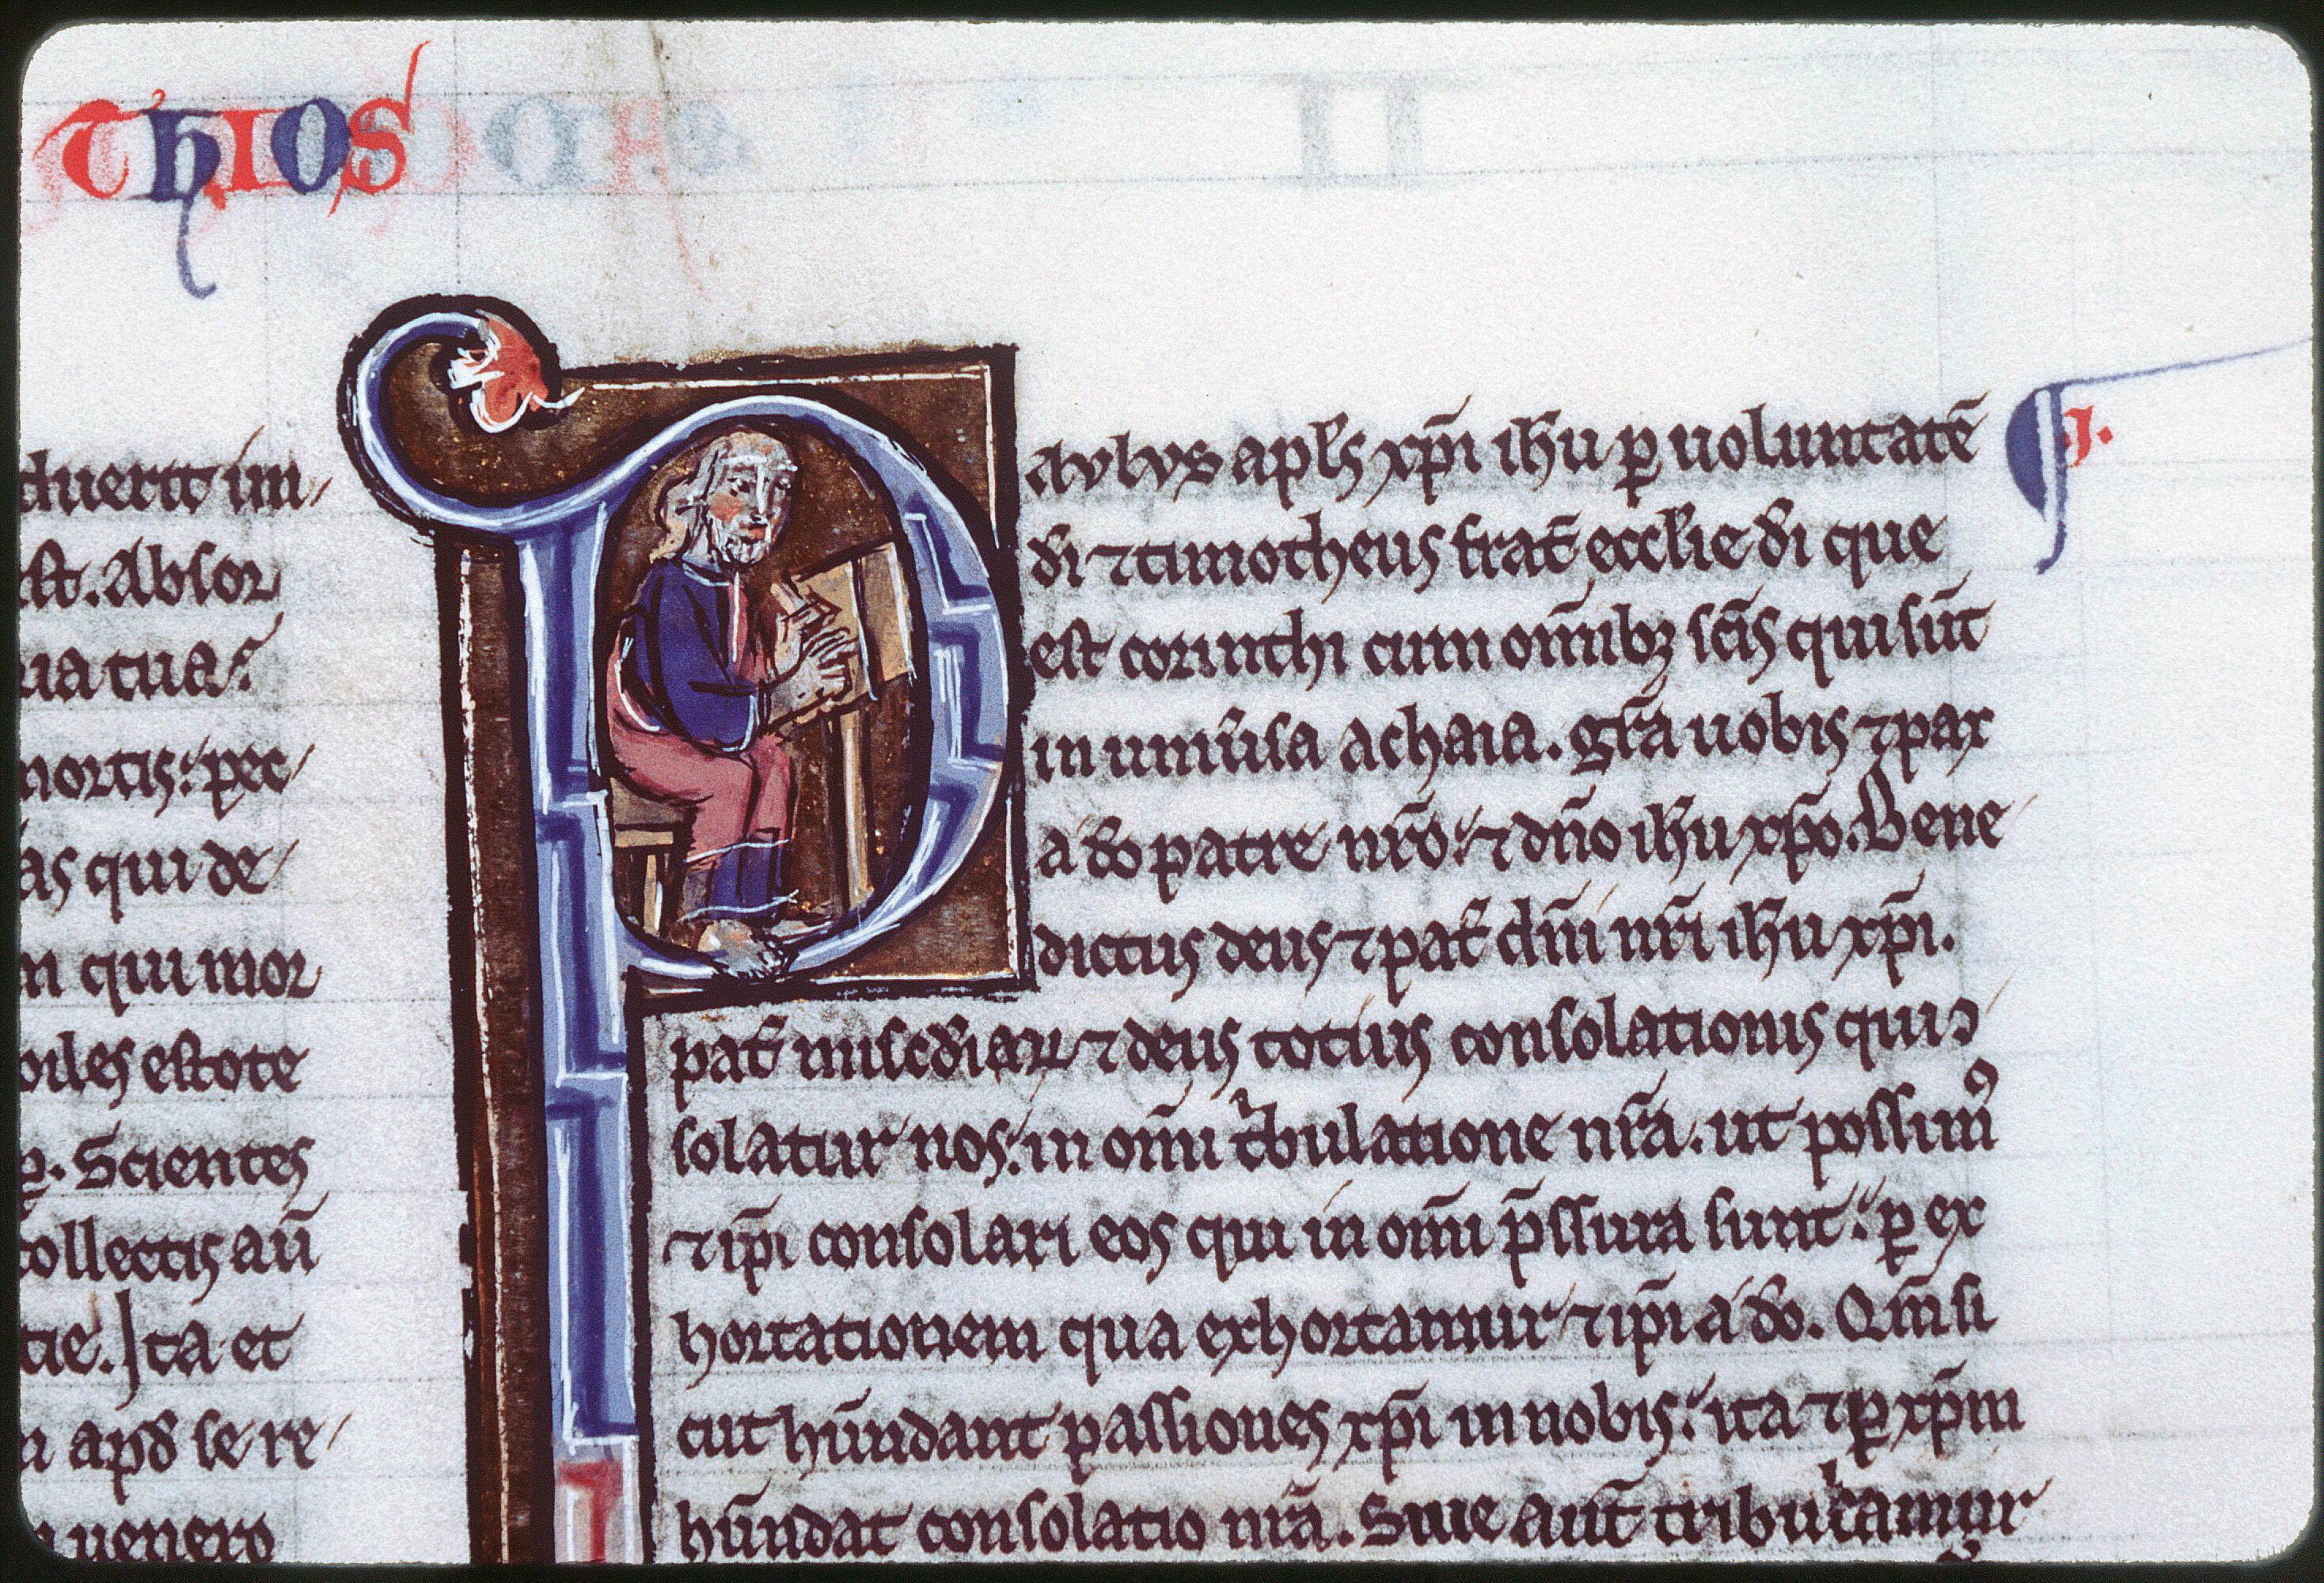 THIOS
duerit im
est. Absor
ria tua?
mortis: pec
as qui de
m qui mor
biles estote
Scientes
collectis au̅
tie. Ita et
m apđ se re
uenero
PAVLVS apl̅s xp̅i ih̅u ꝑ uoluntate̅ .I.
d̅i ⁊ timotheus frat̅ eccl̅ie d̅i que
est corinthi cum om̅ibꝫ sc̅is qui su̅t
in uniu̅sa achaia. gr̅a uobis ⁊ pax
a d̅o patre nr̅o: ⁊ dn̅o ih̅u xp̅o. Bene
dictus deus ⁊ pat̅ dn̅i nr̅i ih̅u xp̅i.
pat̅ mis̅cd̅iaꝝ ⁊ deus totius consolationis qui ↄ
solatur nos: in om̅i t̅bulatione nr̅a. ut possimꝰ
⁊ ip̅i consolari eos qui in om̅i p̅ssura sunt: ꝑ ex
hortationem qua exhortamur ⁊ ip̅i a d̅o. Qm̅ si
cut hu̅ndant passiones xp̅i in nobis: ita ⁊ ꝑ xp̅m
hu̅ndat consolatio nr̅a. Siue aut̅ tribulamur